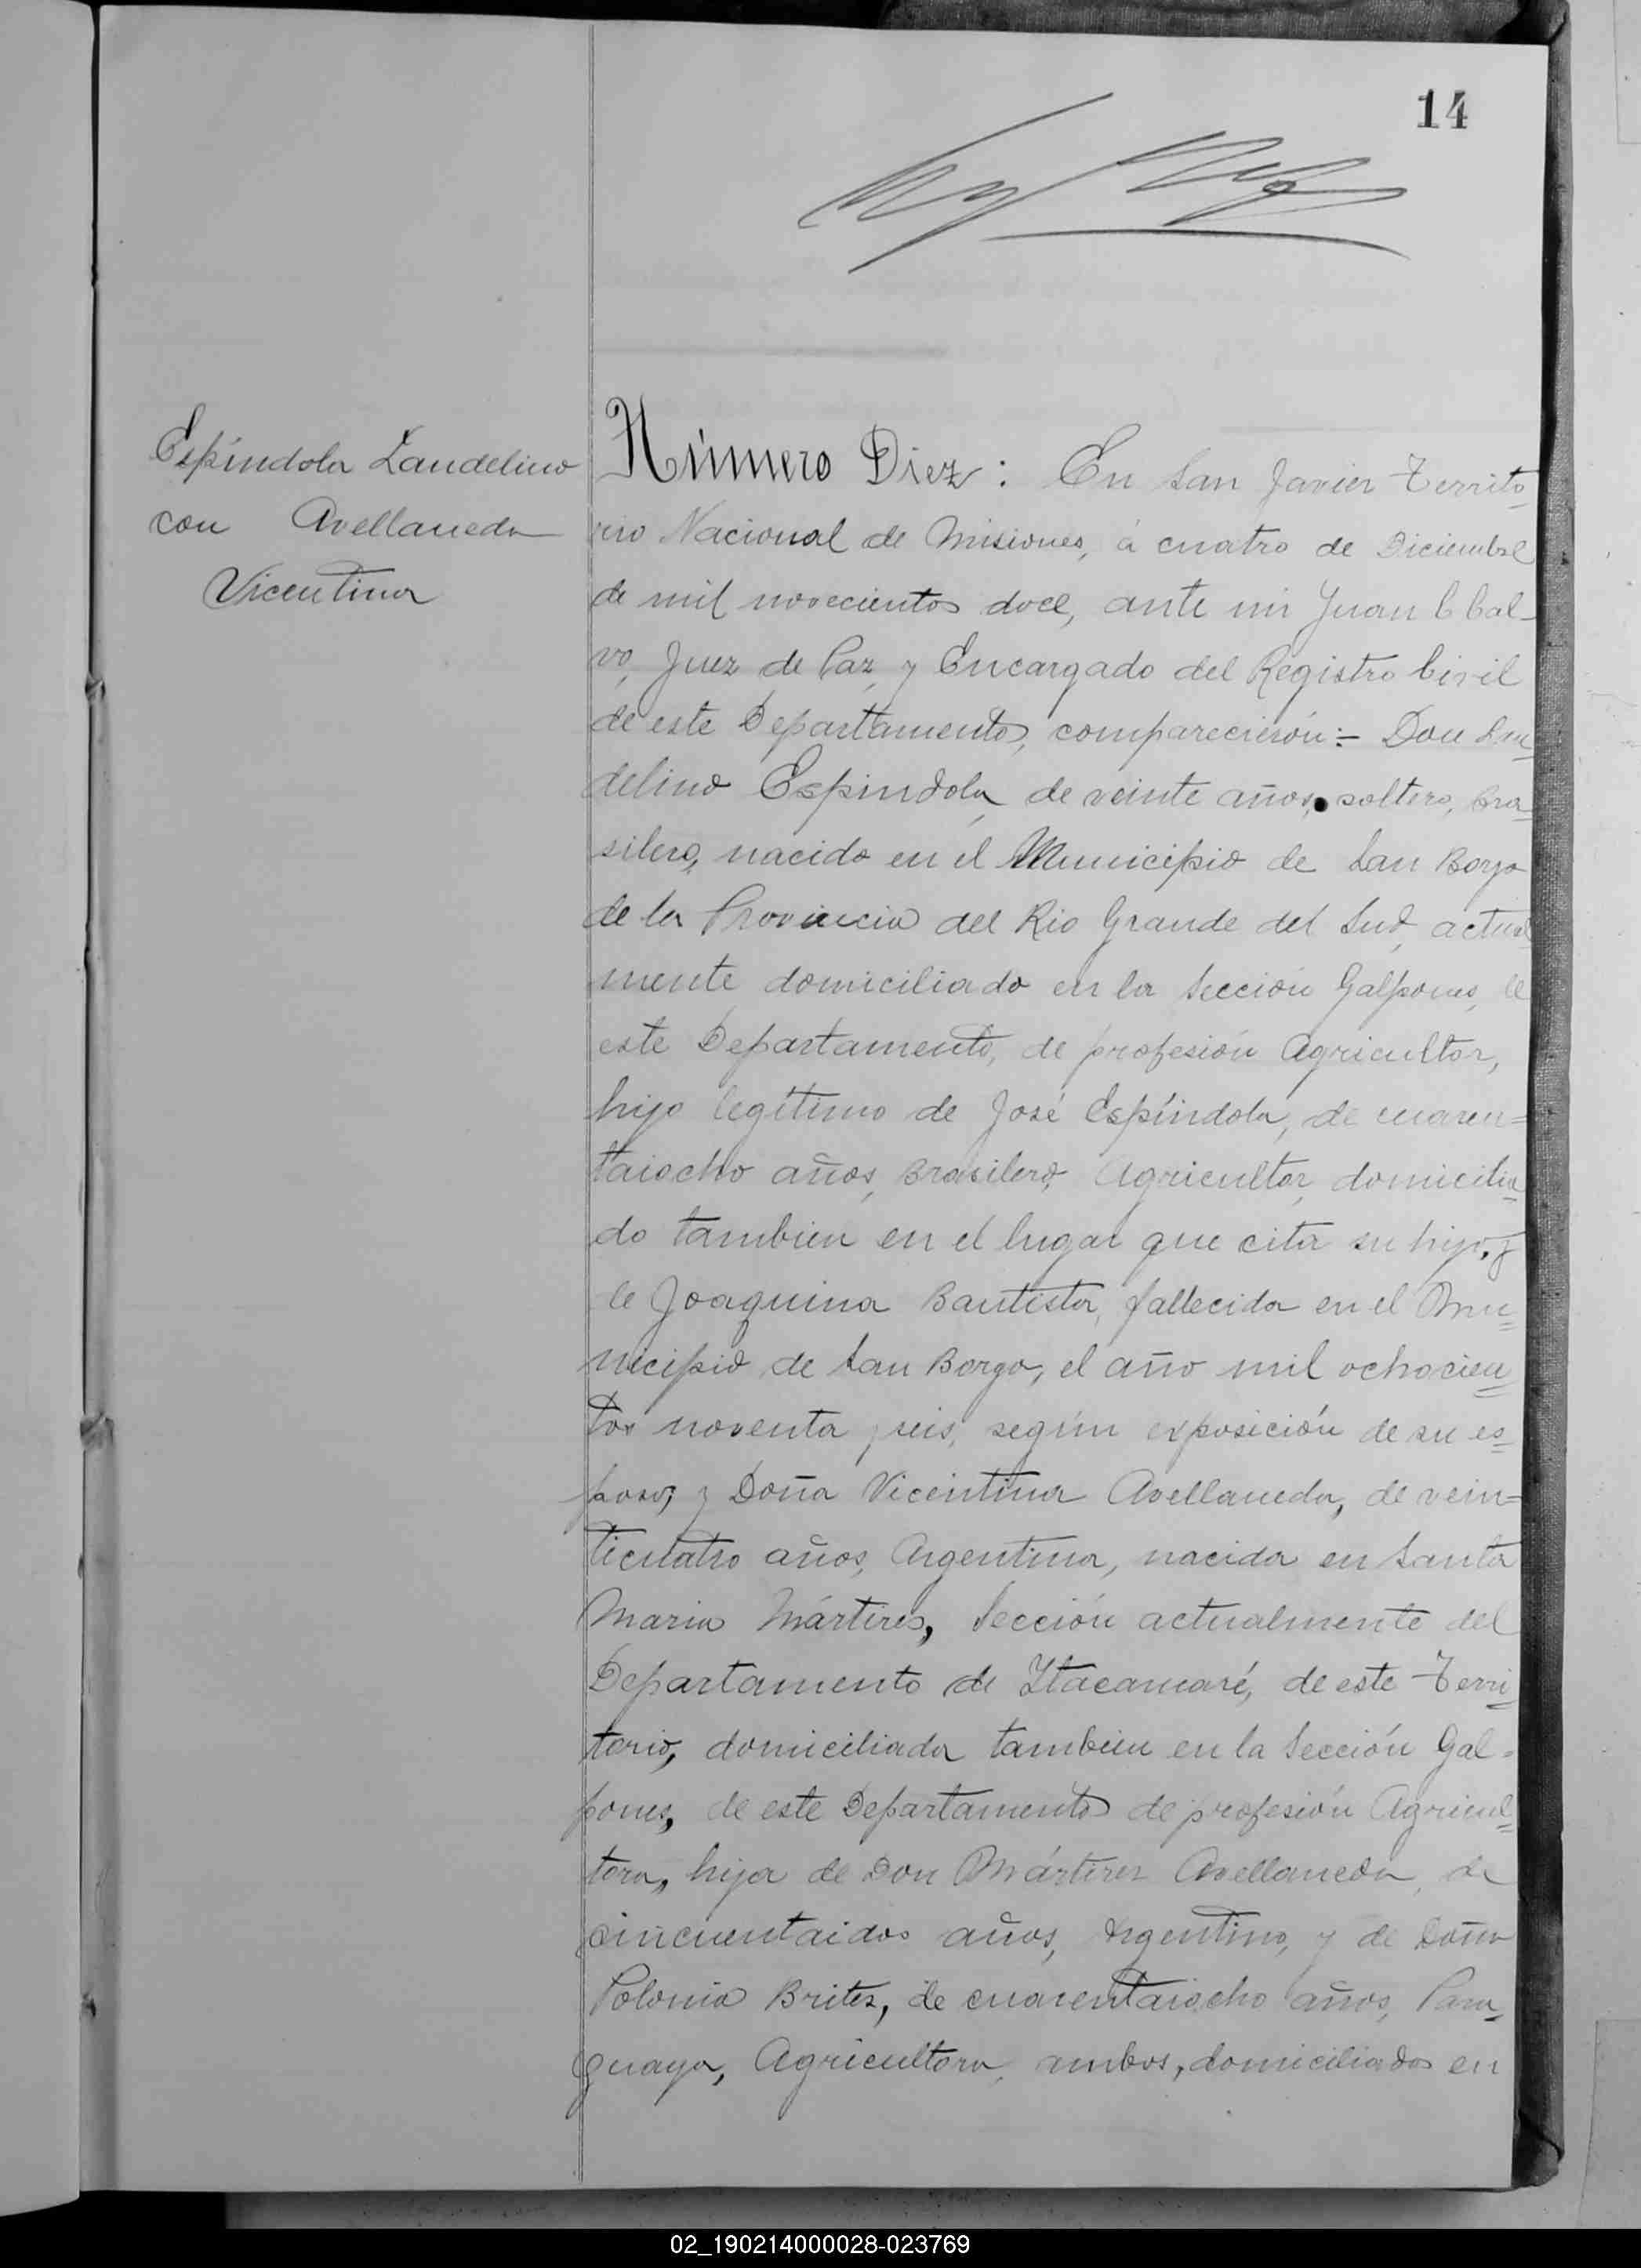 14
Espíndola Landelino
con Avellaneda
Vicentina
Número Diez: En San Javier Territo
rio Nacional de Misiones, á cuatro de Diciembre
de mil novecientos doce, ante mi Juan C Cal-
vo, Juez de Paz, y Encargado del Registro Civil
de este Departamento, comparecierón:- Don Lan
delino Espindola, de veinte años, soltero, bra
silero, nacido en el Municipio de San Borja
de la Provincia del Rio Grande del Sud, actual
mente domiciliado en la Sección Galpones, de
este Departamento, de profesión Agricultor,
hijo legítimo de José Espíndola, de cuaren=
taiocho años, Brasilero, Agricultor, domicilia
do tambien en el lugar que cita su hijo, y
de Joaquina Bautista, fallecida en el Mu
nicipio de San Borga, el año mil ochocien
tos noventa y seis, según exposición de su es
poso; y Doña Vicentina Avellaneda, de vein=
ticuatro años, Argentina, nacida en Santa
Maria Mártires, Sección actualmente del
Departamento de Itacaruaré, de este Terri
torio, domiciliada tambien en la Sección Gal=
pones, de este Departamento de profesión Agricul
tora, hija de Don Mártires Avellaneda, de
cincuentaidos años, Argentino, y de Doña
Polonia Britez, de cuarentaiocho años, Para
guaya, Agricultora, ambos, domiciliados en
02_190214000028-023769